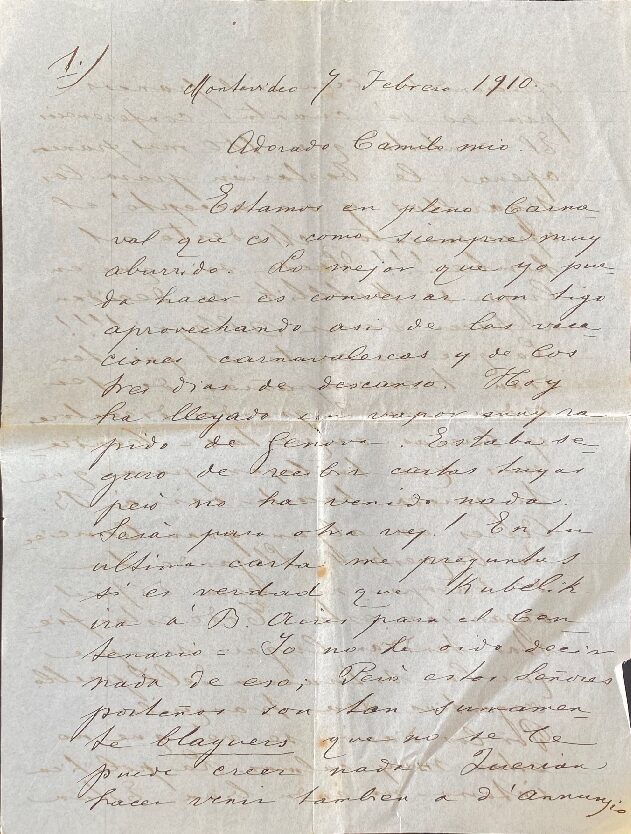 1.)
Montevideo 7 Febrero 1910.
Adorado Camilo mio.
Estamos en pleno Carna
val que es como siempre muy
aburrido. Lo mejor que yo pue-
da hacer es conversar con tigo
aprovechando asi de las vaca-
ciones carnavalescas y de los
tres dias de descanso. Hoy
ha llegado un vapor muy ra-
pido de Genova. Estaba se-
guro de recibir cartas tuyas
però no ha venido nada.
Sarà para otra vez! En tu
ultima carta me preguntas
si es verdad que Kubelik
ira á B. Aires para el Cen-
tenario = Yo no he oido decir
nada de eso; Però estos Señores
porteños son tan sumamen-
te blagueurs que no se le
puede creer nada. Querian
hacer venir tambien a d'Annunzio